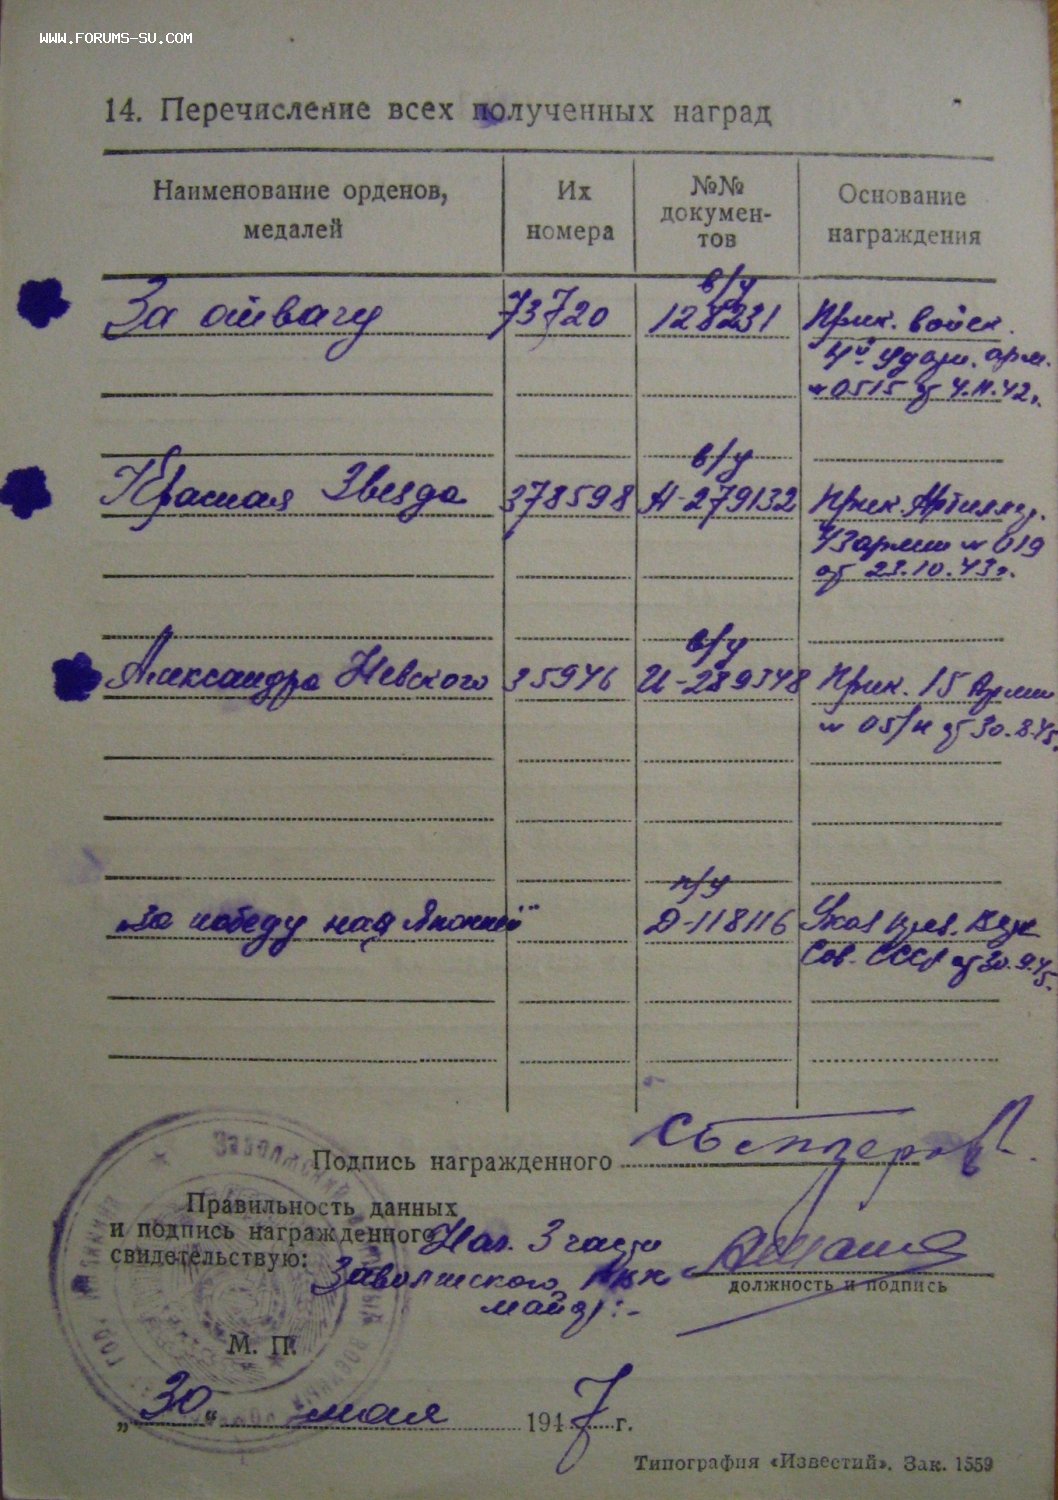 WWW.FORUMS-SU.COM
14. Перечисление всех полученных наград
Наименование орденов, медалей
Их номера
№№ докумен- тов
Основание награждения
в/у
За отвагу 73720 128231 Прик. войск.
4й Удар. арм.
№ 0515 от 4.11.42г.
в/у
Красная Звезда 378598 А-279132 Прик. Артиллер.
43 армии № 019
от 23.10.43г.
в/у
Александра Невского 35946 И-289348 Прик. 15 Армии
№ 05/н от 30.8.45г.
п/у
„За победу над Японией" Д-118116 Указ През. Верх
Сов. СССР от 30.9.45.
Подпись награжденного
Правильность данных
и подпись награжденного
свидетельствую:
Нач. 3 части
Заволжского РВК
майор:-
должность и подпись
М. П.
„30" мая 1947 г.
Типография «Известий». Зак. 1559